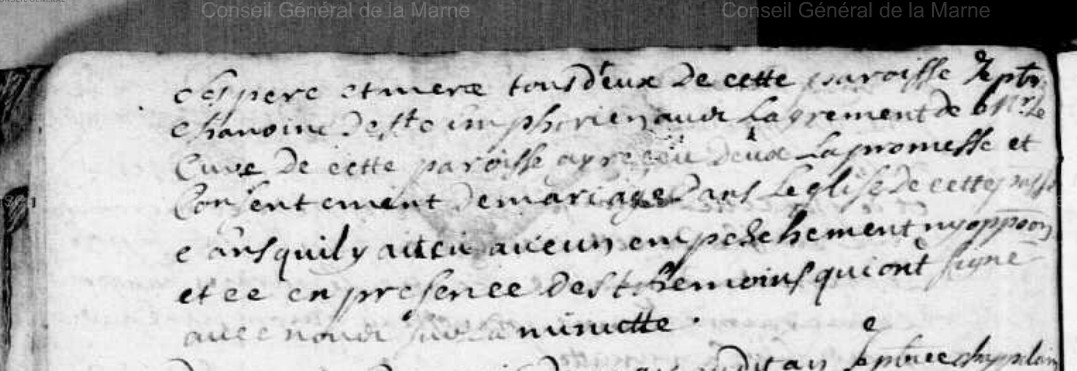 Conseil Général de la Marne
Conseil Général de la Marne
ces pere et mere tous deux de cette paroisse Je ptre
chanoine de st simphorien avec Lagrement de Mr. le
Curé de cette paroisse ay receu deux La promesse et
Consentement de mariage dans Leglise de cette
sans quil y ait eu aucun empeschement ny oppoon
et ce en presence des themoins qui ont signé
avec nous sur la minutte.